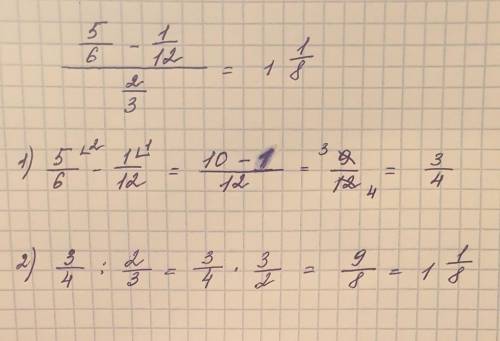 (5/6 - 1/12) / (2/3) = 1 1/8
1) 5/6 ⌞2 - 1/12 ⌞1 = (10 - 1)/12 = 3 9/12 4 = 3/4
2) 3/4 : 2/3 = 3/4 · 3/2 = 9/8 = 1 1/8